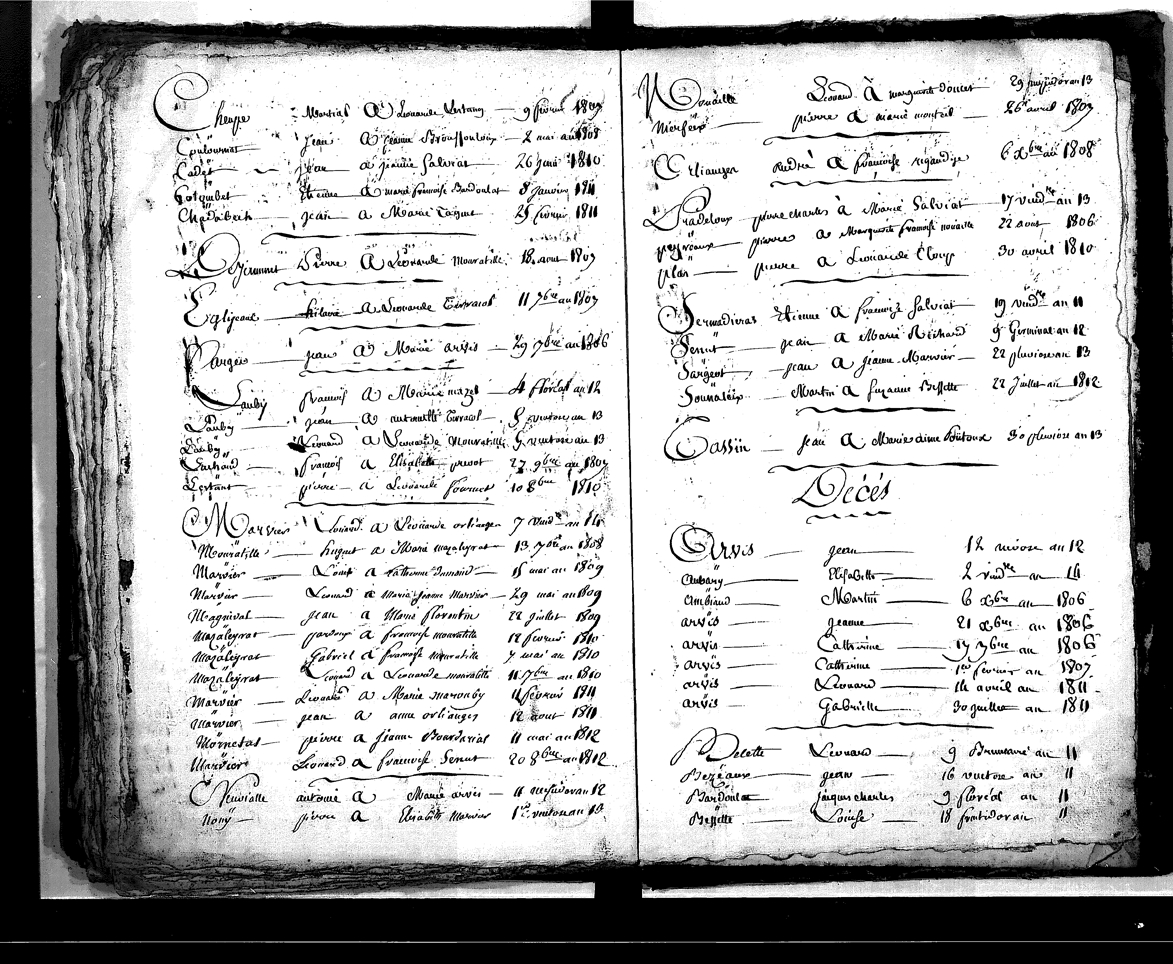 Cheupe Martial a Léonarde 9 février 1809
Jean a Jeanne 2 mai an 1808
Cadet Jean a Jeanne Salviat 26 juin 1810
Colombet Étienne a marie françoise Bardoulat 8 Janvier 1811
Jean a Marie 25 février 1811
Pierre a Léonarde mouratille 18 aout 1809
Eglizeaud hilaire a Léonarde 11 7bre an 1807
Farges Jean a Marie arvis 29 7bre an 1806
Lauby françois a Marie mazel 4 floréal an 12
Lauby jean a antoinette 5 ventose an 13
Lauby Léonard a Léonarde Mouratille 5 ventose an 13
françois a Elisabette prevot 27 9bre an 1807
Lestant pierre a Léonarde fournet 10 8bre 1810
Marvier Léonard a Léonarde orlianges 7 vend.re an 14
Mouratille huguet a Marie mazaleyrat 13 7bre an 1808
Marvier Louis a Catherine dumond 15 mai an 1809
Marvier Léonard a Marie jeanne Marvier 29 mai an 1809
Magnival jean a Marie florentin 22 juillet 1809
Mazaleyrat pardoux a françoise mouratille 12 fevrier 1810
Mazaleyrat Gabriel a françoise mouratille 7 mai an 1810
Mazaleyrat Léonard a Léonarde mouratille 11 7bre an 1810
Marvier Léonard a Marie marouby 4 fevrier 1811
Marvier jean a anne orlianges 12 aout 1811
Mornetas pierre a jeanne Bourdarial 11 mai an 1812
Marvier Léonard a françoise Senut 20 8bre an 1812
Neuvialle antoine a Marie arvis 11 messidor an 12
Nony pierre a Elisabette Marvier 1er ventose an 13
Nouaille Léonard à marguerite doucet 29 messidor an 13
pierre a marie monteil 26 avril 1809
Orlianges André a françoise 6 Xbre an 1808
Pradeloux pierre charles à Marie Salviat 17 vend.re an 13
peyroaux pierre a Marguerite françoise nouaille 22 aout 1806
plas pierre a Léonarde Cloup 30 avril 1810
Sermadiras Etienne a françoise Salviat 19 vend.re an 11
Senut jean a Marie Reihard 9 Germinal an 12
Sargent jean a jeanne Marvier 22 pluviose an 13
Sounaleix Martin a Suzanne Bessette 22 juillet an 1812
Tassin Jean a Marie aimé 30 pluviose an 13
Décés
Arvis jean 12 nivose an 12
Aubary Elisabette 2 vend.re an 14
Ambiaud Martin 6 Xbre an 1806
arvis jeanne 21 Xbre an 1806
arvis Catherine 17 7bre an 1806
arvis Catherine 1er fevrier an 1807
arvis Léonard 14 avril an 1811
arvis Gabrielle 30 juillet an 1811
Belette Léonard 9 Brumaire an 11
Bezeaux jean 16 ventose an 11
Bardoulat jacques charles 9 floréal an 11
Bessette Louise 18 frutidor an 11